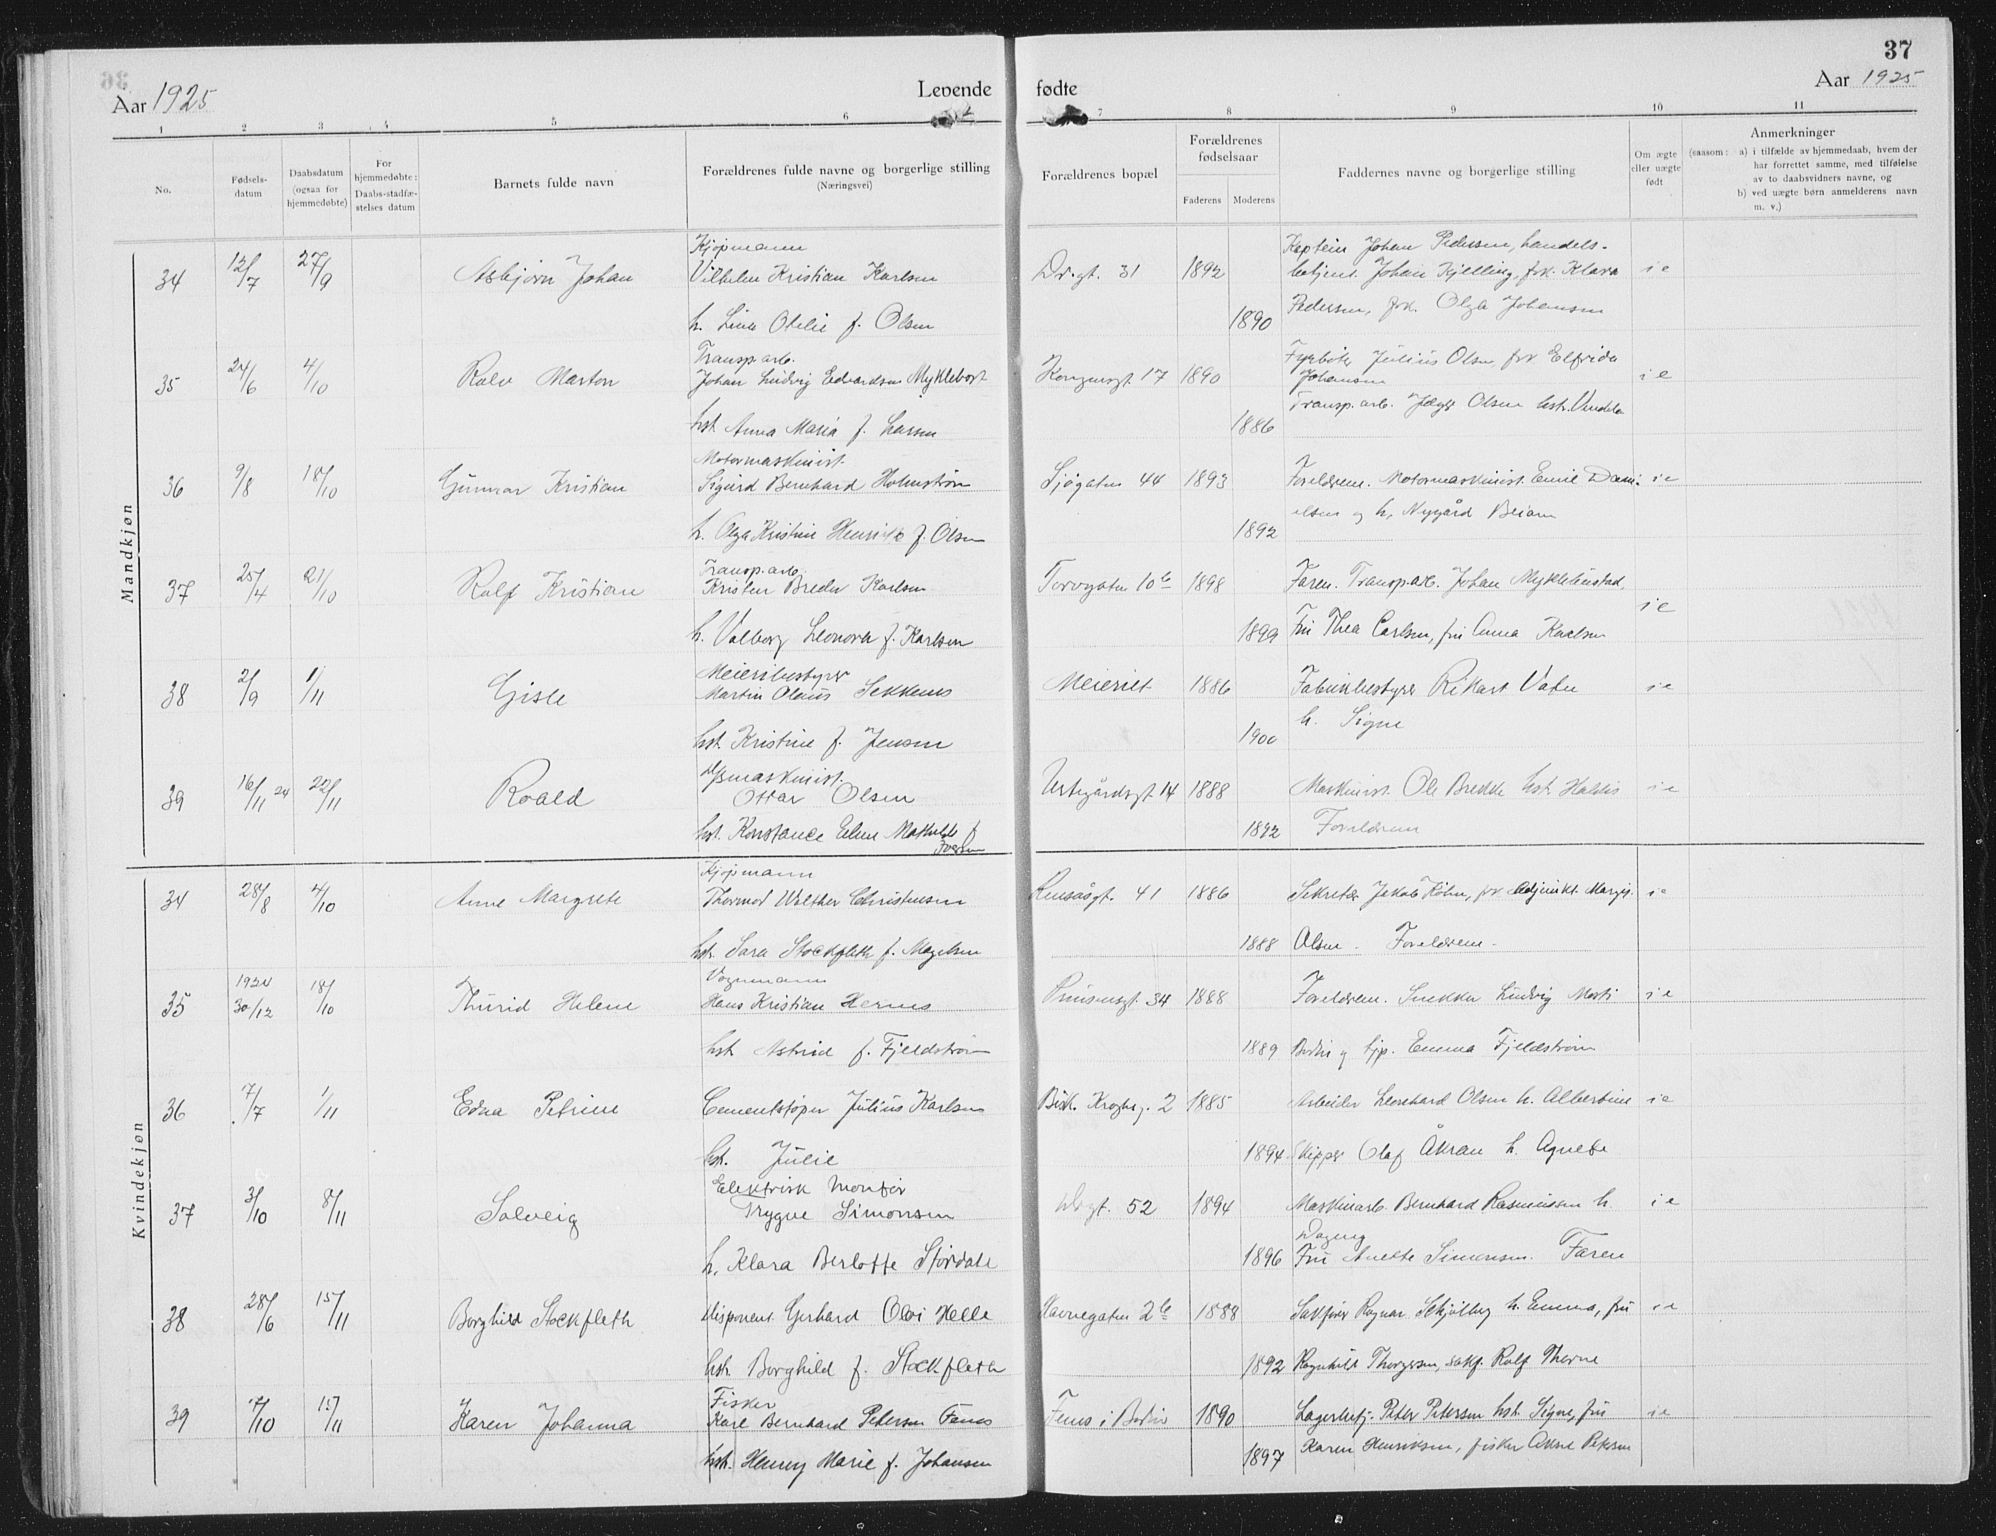 37
Aar 1925
Levende fødte
Aar 1925
1 2 3 4 5 6 7 8 9 10 11
No.
Fødsels-
datum
Daabsdatum
(ogsaa for
hjemmedøbte)
For
hjemmedøbte:
Daabs-stadfæ-
stelses datum
Barnets fulde navn
Forældrenes fulde navne og borgerlige stilling
(Næringsvei)
Forældrenes bopæl
Forældrenes
fødselsaar
Faderens Moderens
Faddernes navne og borgerlige stilling
Om ægte
eller uægte
født
Anmerkninger
(saasom: a) i tilfælde av hjemmedaab, hvem der
har forrettet samme, med tilføielse
av to daabsvidners navne, og
b) ved uægte børn anmelderens navn
m. v.)
Mandkjøn
Kjøpmann Kaptein Johan Pedersen, handels-
34 12/7 27/9 Asbjørn Johan Vilhelm Kristian Karlsen Dr.gt. 31 1892 betjent Johan Kjelling, frk. Klara i e
h. Lina Otelie f. Olsen 1890 Pedersen, frk. Olga Johansen
Transp.arb. Fyrbøter Julius Olsen, frk Elfrida
35 24/6 4/10 Ralv Marton Johan Ludvig Edvardsen Myklebost Kongensgt. 17 1890 Johansen i e
Transp. arb. Olsen hst.
hst. Anna Maria f. Larsen 1886
Motormaskinist
36 9/8 18/10 Gunnar Kristian Sigurd Bernhard Holmstrøm Sjøgaten 44 1893 Foreldrene. Motormaskinist Emil Dani- i e
h. Olga Kristine Henrikke f. Olsen 1892 elsen og h, Nygård Beiarn
Transp.arb.
37 25/4 21/10 Ralf Kristian Kristen Breder Karlsen Torvgaten 10b 1898 Faren. Transp.arb. Johan Myklebustad, i e
h. Valborg Leonora f. Karlsen 1899 Fru Thea Carlsen, fru Anna Karlsen
Meieribestyrer
38 2/9 1/11 Gisle Martin Olaus Sekkenes Meieriet 1886 Fabrikbestyrer Rikart i e
hst. Kristine f. Jensen 1900 h. Signe
maskinist
39 16/11 24 22/11 Roald Ottar Olsen 14 1888 Maskinist Ole Bredde hst. Haldis i e
hst. Konstance Eline Mathilde f Iversen 1892 Foreldrene
Kvindekjøn
Kjøpmann
34 28/8 4/10 Anne Margrete Thormod Walther Christensen Rensåsgt. 41 1886 Sekretær Jakob Køhn, frk Adjunkt Margit i e
hst. Sara Stockfleth f. Magelsen 1888 Olsen. Foreldrene.
1924 Vognmann
35 30/12 18/10 Thurid Helene Hans Kristian Hernes Prinsensgt. 34 1888 Foreldrene. Snekker Ludvig i e
hst. Astrid f. Fjeldstrøm 1889 Bodin og tjp. Emma Fjeldstrøm
36 7/7 1/11 Edna Petrine Cementstøper Julius Karlsen Bisk. Kroghsg. 2 1885 Arbeider Leonhard Olsen h. Albertine i e
hst. Julie 1894 Skipper Olaf Åkran h. Agnete
Elektrisk montør
37 3/10 8/11 Solveig Trygve Simonsen Drgt. 52 1894 Maskinarb. Bernhard Rasmussen h. i e
Dagny
h. Klara Berlotte Stordale 1896 Fru Anette Simonsen. Faren
38 28/6 15/11 Borghild Stockfleth Disponent Gerhard Olvi Helle Havnegaten 2b 1888 Sakfører Ragnar Schjølberg h. Emma, fru i e
hst. Borghild f. Stockfleth 1892 Ragnhild Thorgersen, sakf. Rolf Thorne
Fisker
39 7/10 15/11 Karen Johanna Karl Bernhard Petersen Fenes Fenes i Bodin 1890 Lagerbetj. Peter Petersen hst. Signe, fru i e
hst. Henny Marie f. Johansen 1897 Karen Henriksen, fisker Petersen